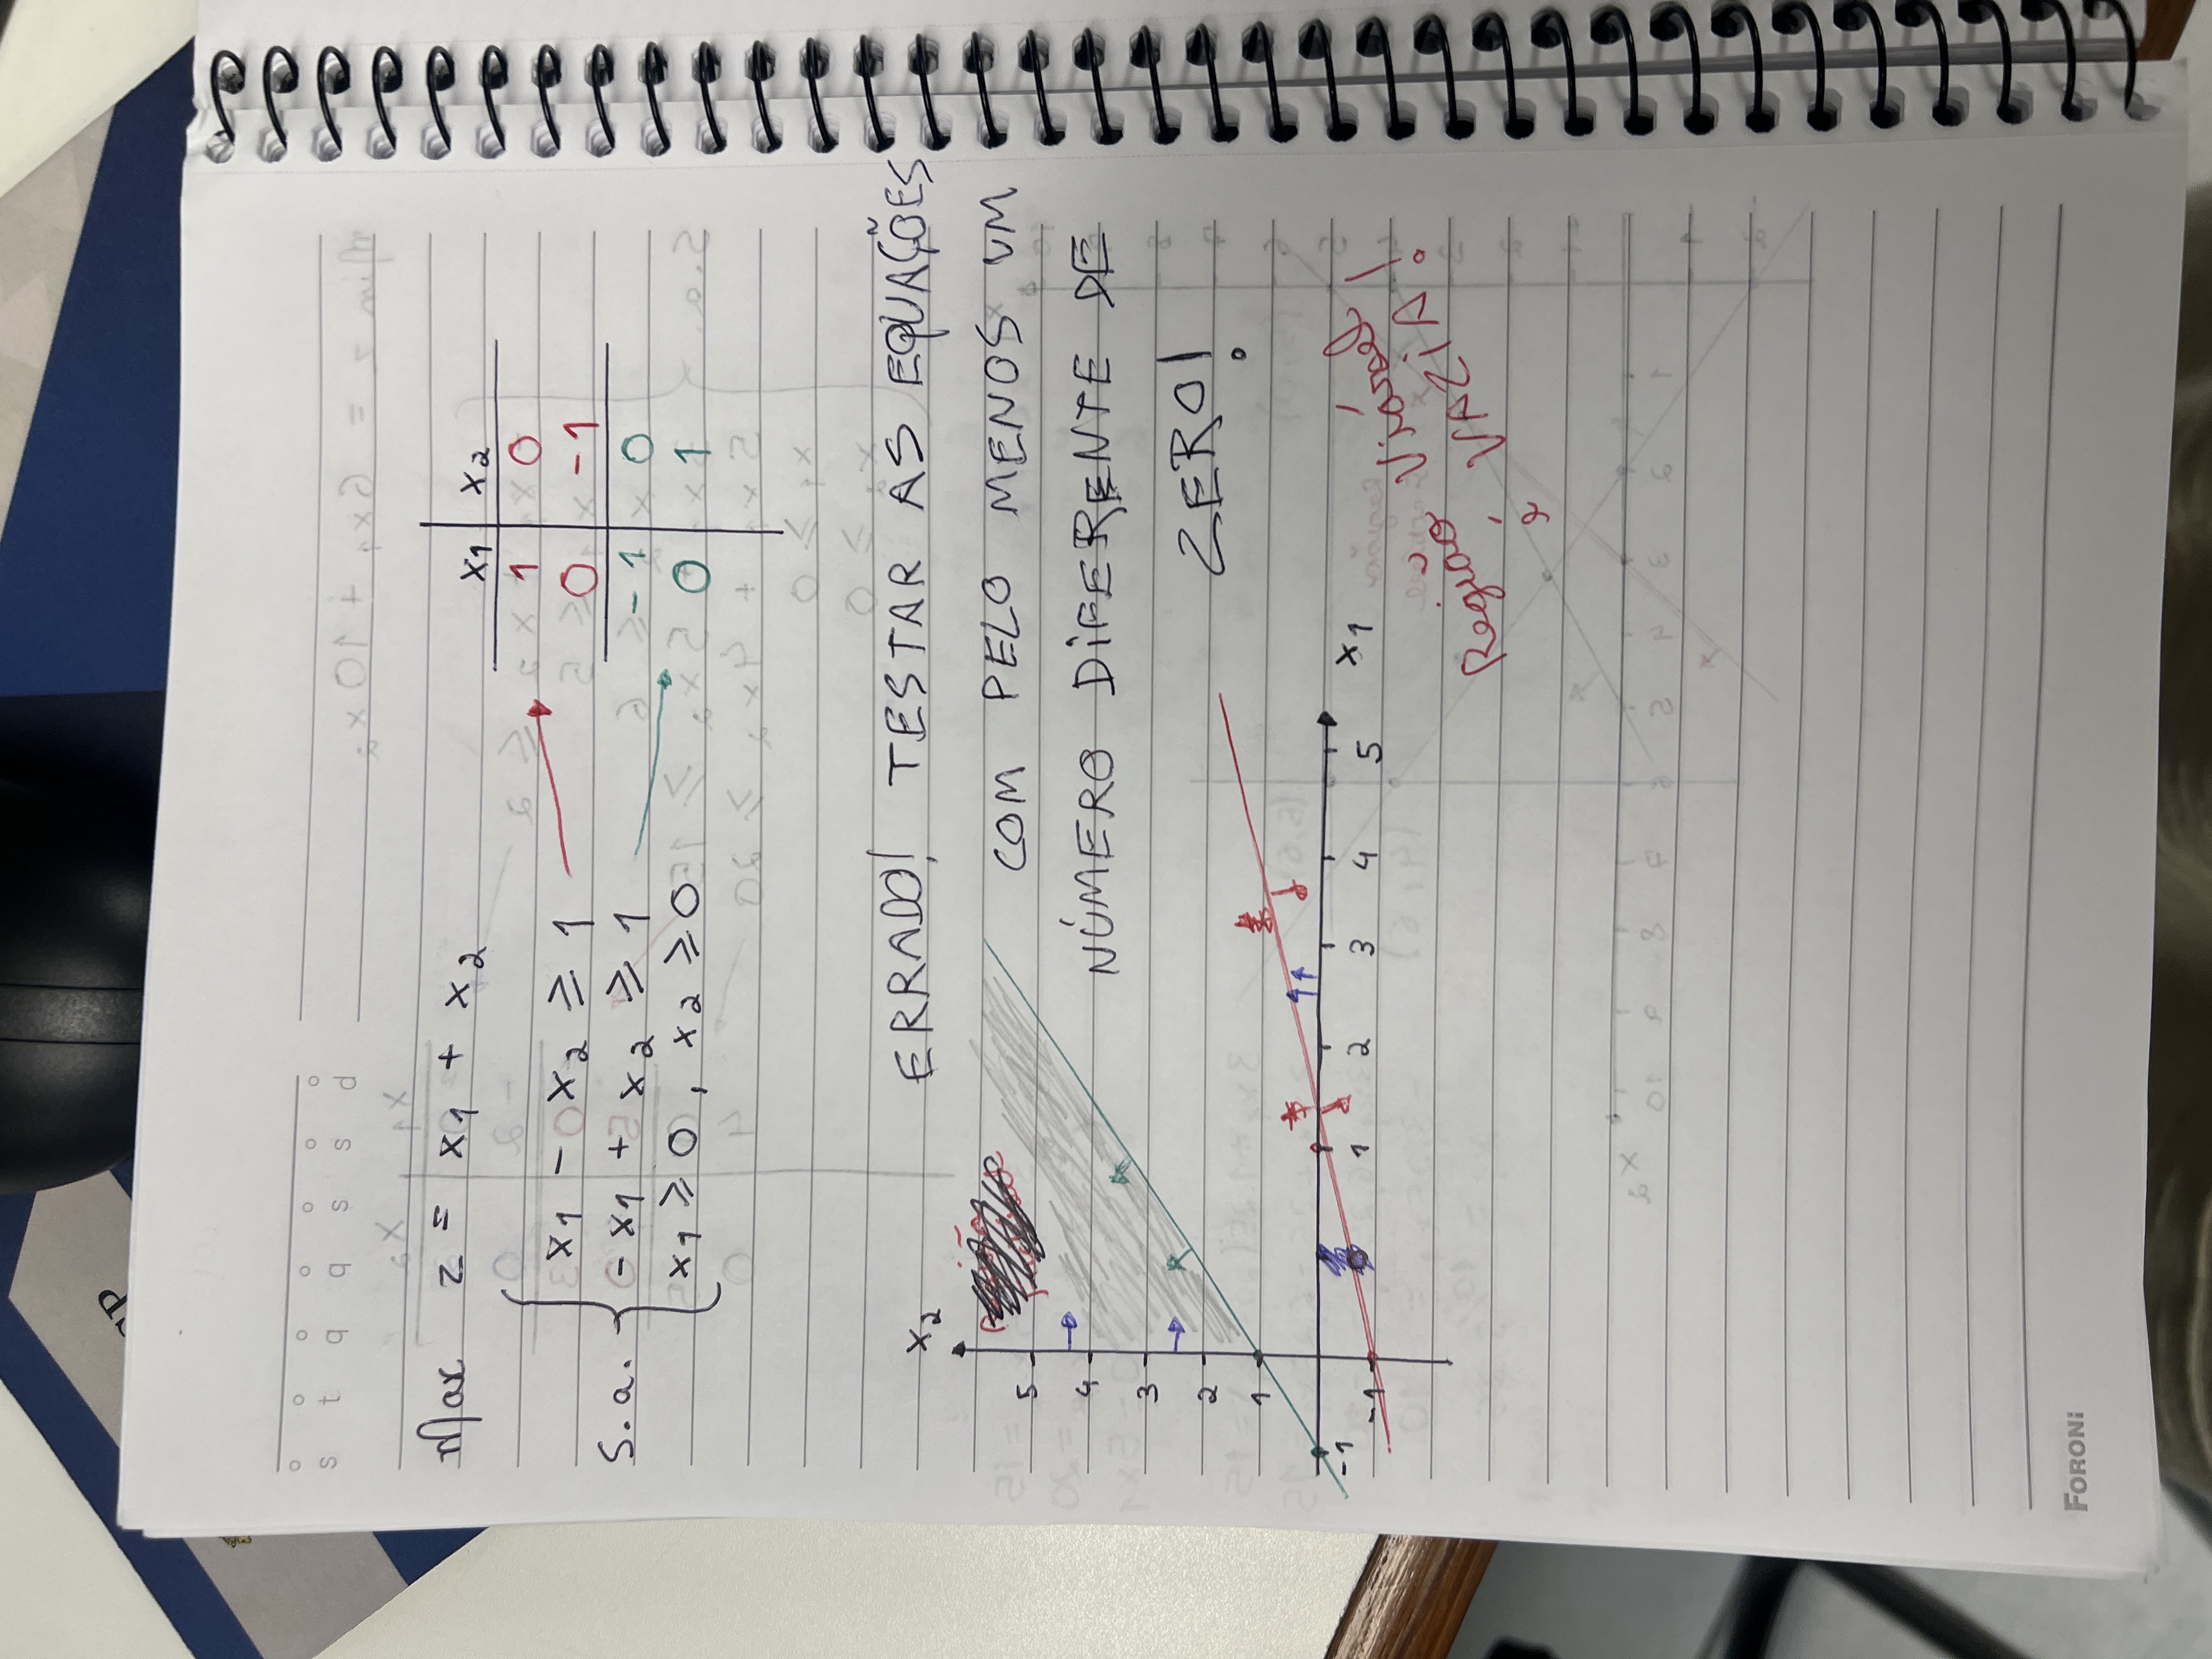 SP
s t q q s s d
Max z = x1 + x2
x1 x2
1 0
0 -1
-1 0
0 1
s.a.
x1 - x2 ⩾ 1
- x1 + x2 ⩾ 1
x1 ⩾ 0 , x2 ⩾ 0
ERRADO! TESTAR AS EQUAÇÕES
COM PELO MENOS UM
NÚMERO DIFERENTE DE
ZERO!
x2
5
4
3
2
1
-1
-1
1 2 3 4 5 x1
Região Viável
é VAZIA!
FORONI